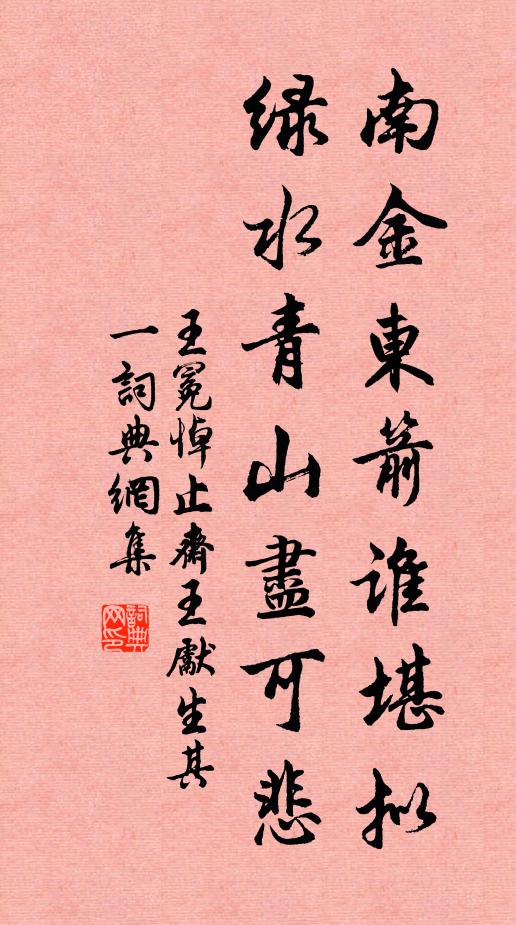 南金東箭誰堪拟
緑水青山盡可悲
王冕悼止齋王獻生其
一詞典網集
詞典
网印